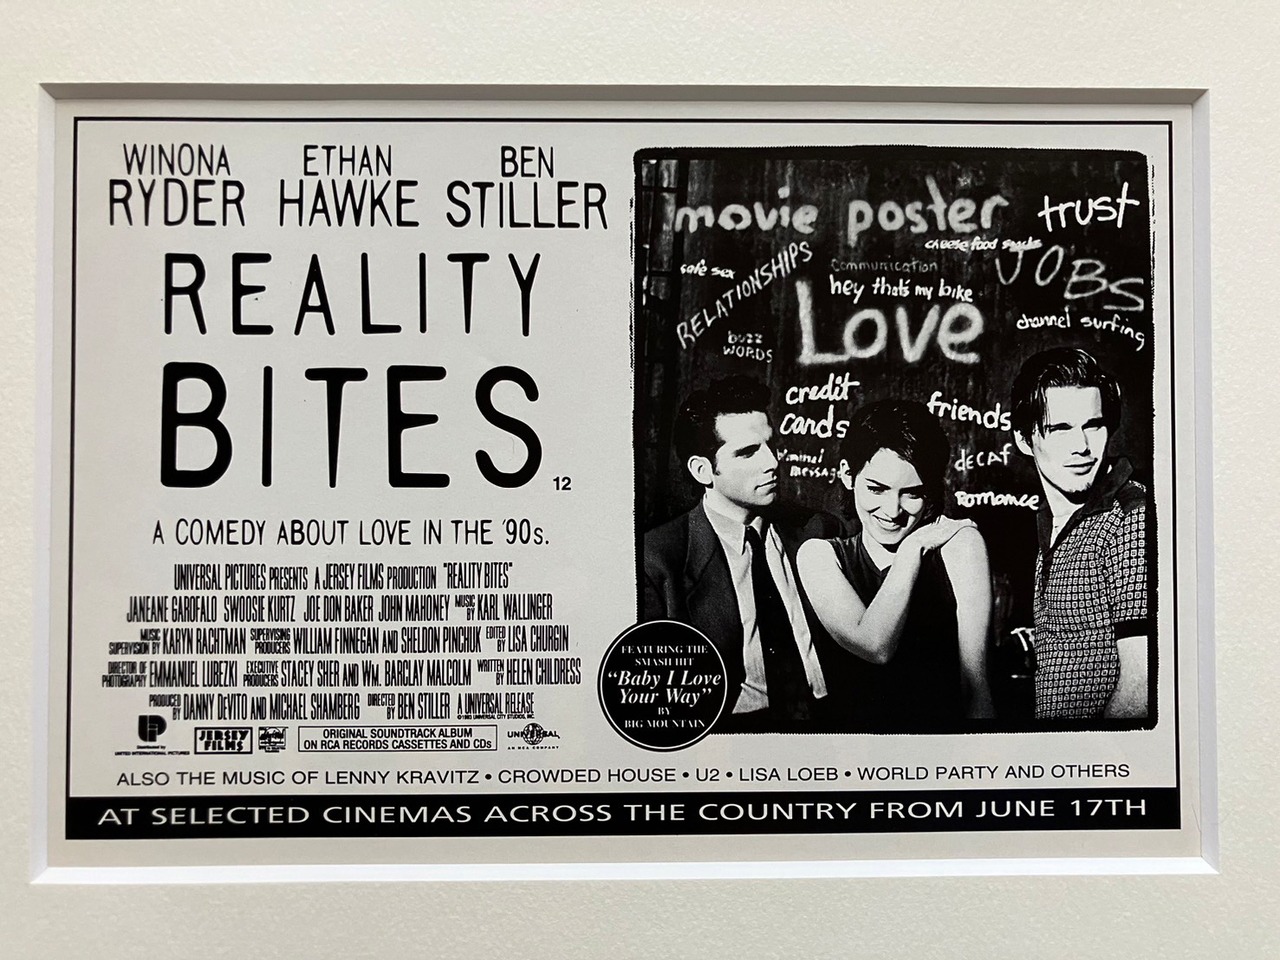 WINONA RYDER
ETHAN HAWKE
BEN STILLER
REALITY
BITES
12
A COMEDY ABOUT LOVE IN THE '90s.
UNIVERSAL PICTURES PRESENTS A JERSEY FILMS PRODUCTION "REALITY BITES"
JANEANE GAROFALO SWOOSIE KURTZ JOE DON BAKER JOHN MAHONEY MUSIC BY KARL WALLINGER
MUSIC SUPERVISION BY KARYN RACHTMAN SUPERVISING PRODUCERS WILLIAM FINNEGAN AND SHELDON PINCHUK EDITED BY LISA CHURGIN
DIRECTOR OF PHOTOGRAPHY EMMANUEL LUBEZKI EXECUTIVE PRODUCERS STACEY SHER AND WM. BARCLAY MALCOLM WRITTEN BY HELEN CHILDRESS
PRODUCED BY DANNY DEVITO AND MICHAEL SHAMBERG DIRECTED BY BEN STILLER A UNIVERSAL RELEASE
©1993 UNIVERSAL CITY STUDIOS, INC.
Distributed by
UNITED INTERNATIONAL PICTURES
JERSEY
FILMS
ORIGINAL SOUNDTRACK ALBUM
ON RCA RECORDS CASSETTES AND CDs
UNIVERSAL
AN MCA COMPANY
movie poster
trust
cheese food snacks
safe sex
RELATIONSHIPS
Communication
JOBS
hey that's my bike
Love
channel surfing
buzz
WORDS
credit
cards
friends
decaf
message
Romance
FEATURING THE
SMASH HIT
"Baby I Love
Your Way"
BY
BIG MOUNTAIN
ALSO THE MUSIC OF LENNY KRAVITZ • CROWDED HOUSE • U2 • LISA LOEB • WORLD PARTY AND OTHERS
AT SELECTED CINEMAS ACROSS THE COUNTRY FROM JUNE 17TH